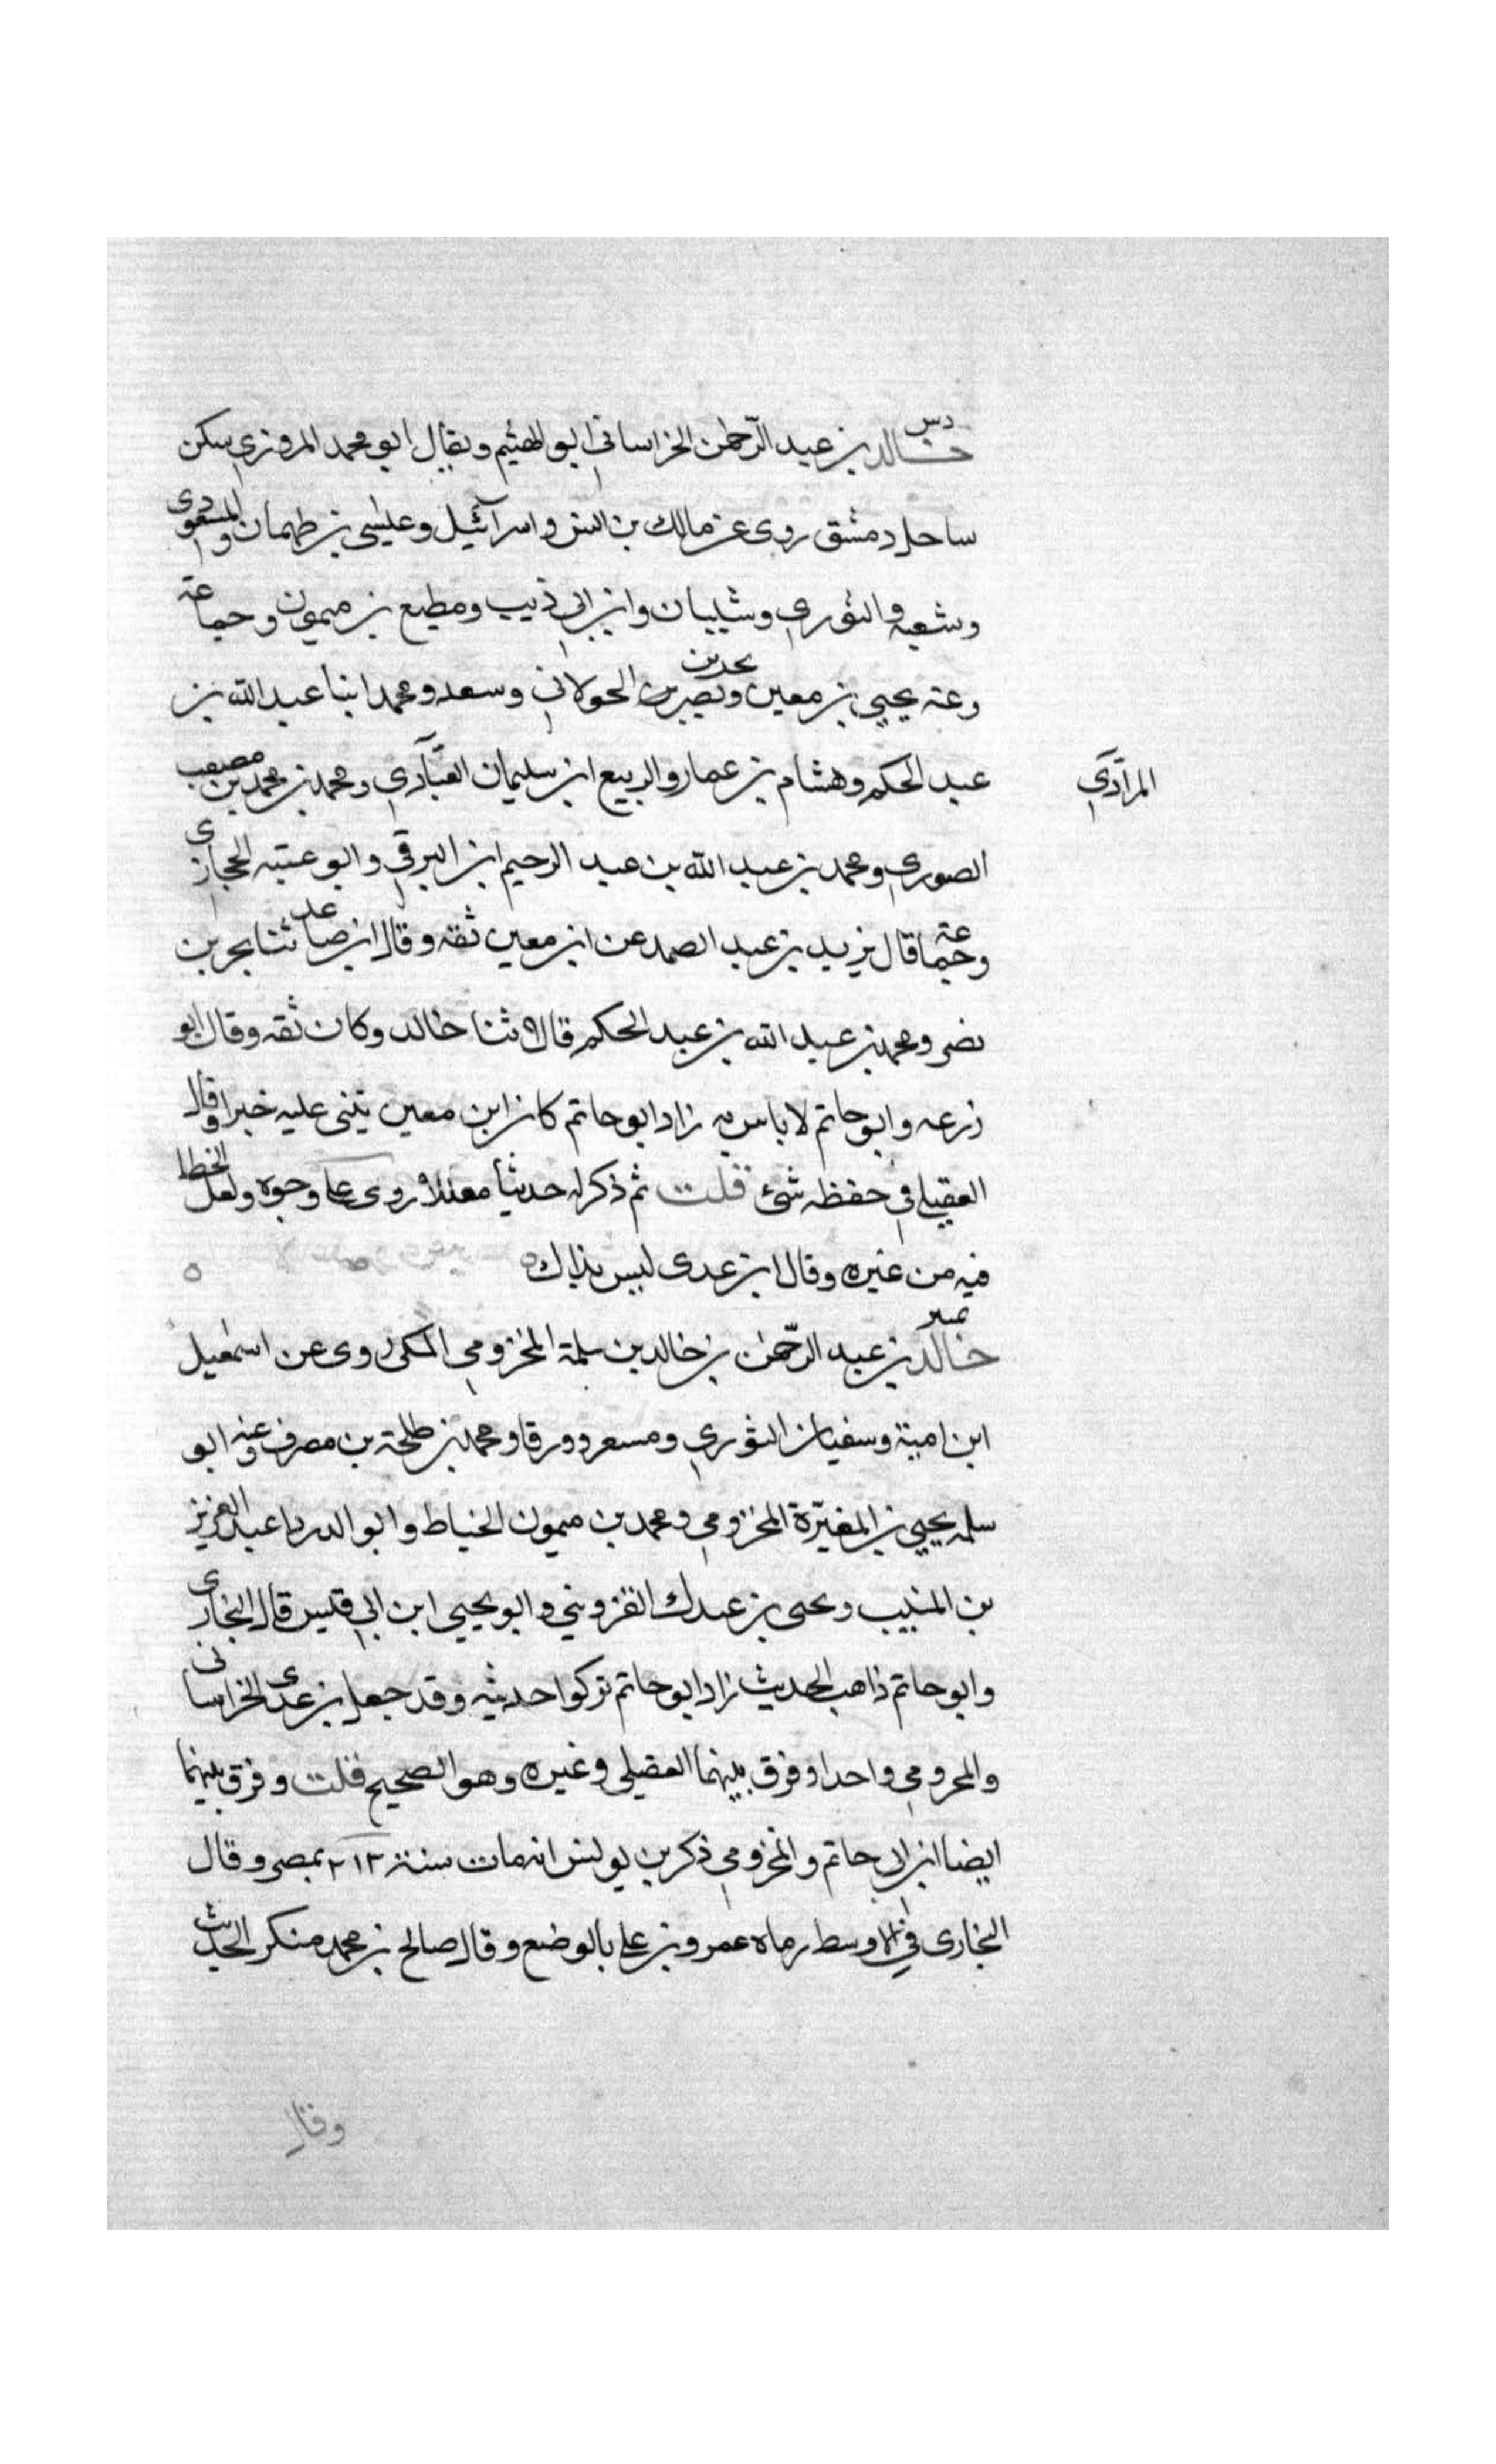 دس
خالد بن عبد الرّحمن الخراساني ابو الهيثم ويقال ابو محمد المروزي سكن
ساحل دمشق روى عن مالك بن انس و اسرآئيل وعيسى بن طهمان والمسعودى
وشعبه والثوري وشيبان وابن ابي ذيب ومطيع بن ميمون وجماعة
وعنه يحيى بن معين وبحر بن نصر الخولاني وسعد ومحمد ابنا عبد الله بن
عبد الحكم وهشام بن عمار والربيع ابن سليمان ومحمد بن محمد بن مصعب
المرآدي
الصوري ومحمد بن عبد الله بن عبد الرحيم ابن البرقي وابو عتبه الحجازى
وجماعة قال يزيد بن عبد الصمد عن ابن معين ثقه وقال ابن صاعد ثنا بحر بن
نصر ومحمد بن عبد الله بن عبد الحكم قالا ثنا خالد وكان ثقه وقال ابو
زرعه وابو حاتم لا باس به زاد ابو حاتم كان ابن معين يثنى عليه خيرا وقال
العقيلي في حفظه شئ قلت ثم ذكر له حديثا معللا روى على وجوه ولعل الخطا
فيه من غيره وقال ابن عدى ليس بذاك ه
تمييز
خالد بن عبد الرّحمن بن خالد بن سلمة المخزومي المكى روى عن اسمعيل
ابن امية وسفيان الثوري ومسعر وورقا ومحمد بن طلحة بن مصرف وعنه ابو
سلمه يحيى بن المغيّرة المخزومي ومحمد بن ميمون الخياط وابو الدرداء عبد العزيز
بن المنيب ويحى بن عبدك القزويني وابو يحيى ابن ابي قيس قال البخارى
وابو حاتم ذاهب الحديث زاد ابو حاتم تركوا حديثه وقد جعل بن عدى الخراسانى
والمخزومي واحدا وفرق بينهما العقيلي وغيره وهو الصحيح قلت وفرق بينهما
ايضا ابن ابي حاتم والمخزومي ذكر بن يونس انه مات سنة ٢١٢ بمصر وقال
البخارى في الاوسط رماه عمرو بن علي بالوضع وقال صالح بن محمد منكر الحديث
وقال